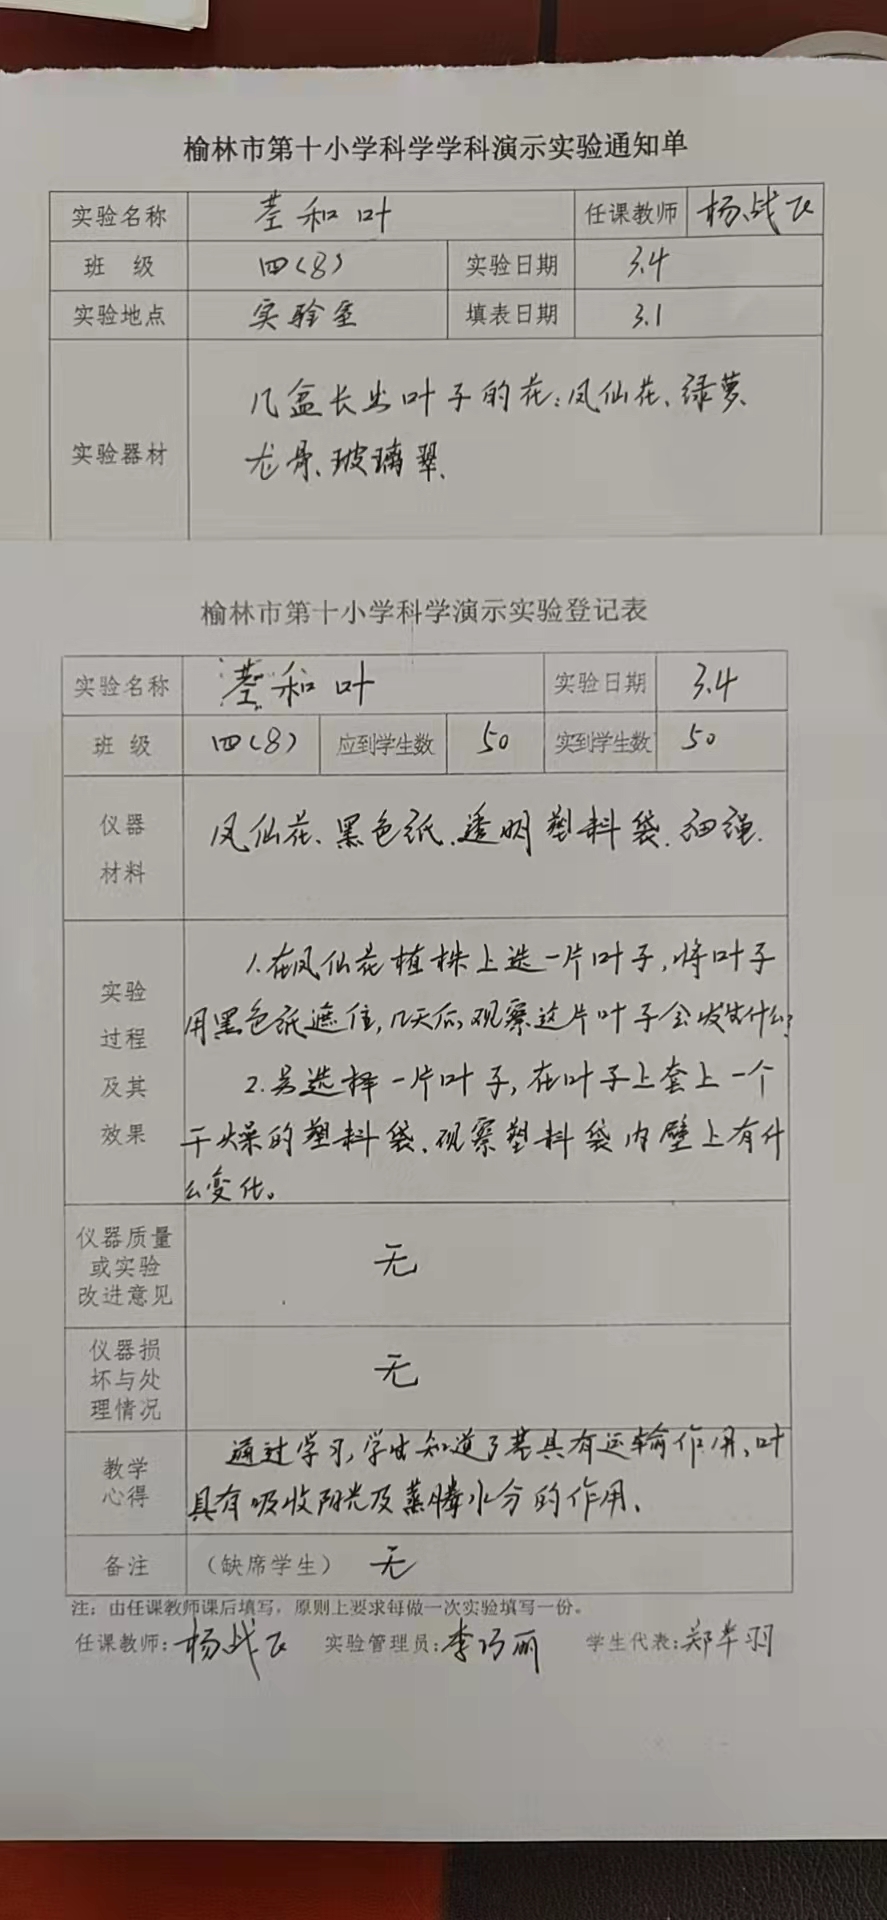 榆林市第十小学科学学科演示实验通知单
实验名称 茎和叶 任课教师 杨战飞
班 级 四(8) 实验日期 3.4
实验地点 实验室 填表日期 3.1
实验器材 几盆长出叶子的花:凤仙花、绿萝、
龙骨、玻璃翠.
榆林市第十小学科学演示实验登记表
实验名称 茎和叶 实验日期 3.4
班 级 四(8) 应到学生数 50 实到学生数 50
仪器
材料
凤仙花、黑色纸、透明塑料袋、细绳.
实验
过程
及其
效果
1.在凤仙花植株上选一片叶子,将叶子
用黑色纸遮住,几天后,观察这片叶子会发生什么?
2.另选择一片叶子,在叶子上套上一个
干燥的塑料袋、观察塑料袋内壁上有什
么变化。
仪器质量
或实验
改进意见
无
仪器损
坏与处
理情况
无
教学
心得
通过学习,学生知道了茎具有运输作用、叶
具有吸收阳光及蒸腾水分的作用、
备注 (缺席学生) 无
注:由任课教师课后填写,原则上要求每做一次实验填写一份。
任课教师:杨战飞 实验管理员:李巧丽 学生代表:郑羽